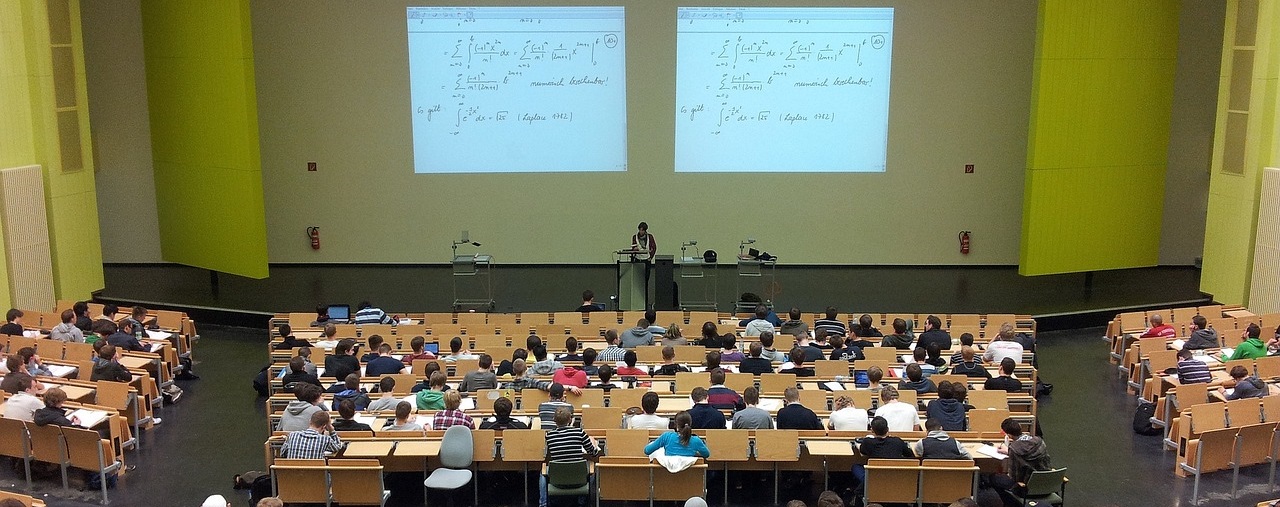 = ∑_{n=0}^{∞} ∫_0^b \frac{(-1)^n x^{2n}}{n!} dx = ∑_{n=0}^{∞} \frac{(-1)^n}{n!} \frac{1}{(2n+1)} x^{2n+1} |_0^b
= ∑_{n=0}^{∞} \frac{(-1)^n}{n!(2n+1)} b^{2n+1} numerisch berechenbar!
Es gilt ∫_{-∞}^{∞} e^{-\frac{1}{2}x²} dx = √2π (Laplace 1782)
= ∑_{n=0}^{∞} ∫_0^b \frac{(-1)^n x^{2n}}{n!} dx = ∑_{n=0}^{∞} \frac{(-1)^n}{n!} \frac{1}{(2n+1)} x^{2n+1} |_0^b
= ∑_{n=0}^{∞} \frac{(-1)^n}{n!(2n+1)} b^{2n+1} numerisch berechenbar!
Es gilt ∫_{-∞}^{∞} e^{-\frac{1}{2}x²} dx = √2π (Laplace 1782)